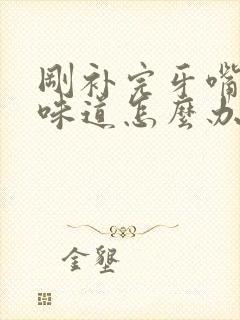 剛补完牙嘴
味道怎麼办
金墾